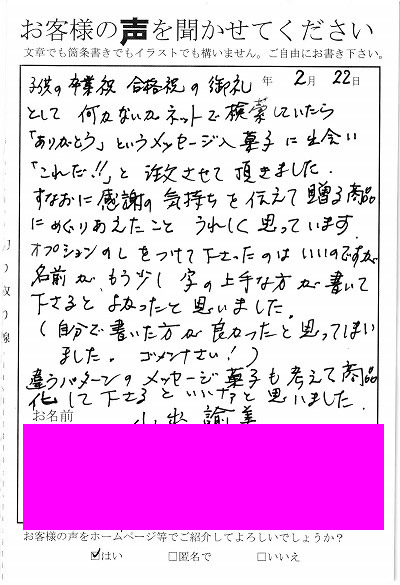 お客様の声を聞かせてください
文章でも箇条書きでもイラストでも構いません。ご自由にお書き下さい。
年 2月 22日
子供の卒業祝 合格祝の御礼
として 何かないか ネットで検索していたら
「ありがとう」というメッセージ入菓子に出会い
「これだ!!」と 注文させて頂きました.
すなおに感謝の気持ちを伝えて贈る商品
にめぐりあえたこと うれしく思っています.
オプションのしをつけて下さったのはいいのですが
名前が、もう少し字の上手な方が書いて
下さると よかったと思いました.
(自分で書いた方が良かったと思ってしまい
ました。 ゴメンナさい!)
違うパターンの メッセージ菓子も考えて商品
化して下さると いいナァと思いました.
お名前
お客様の声をホームページ等でご紹介してよろしいでしょうか?
☑はい □匿名で □いいえ